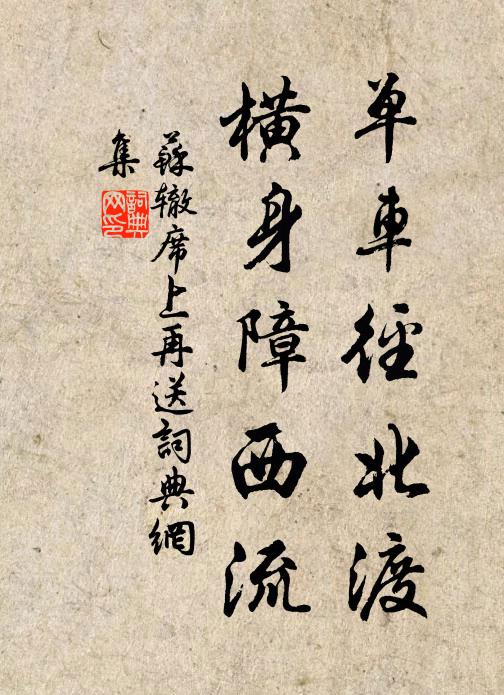 单車徑北渡
横身障西流
蘇辙席上再送詞典網
集
詞典
网印